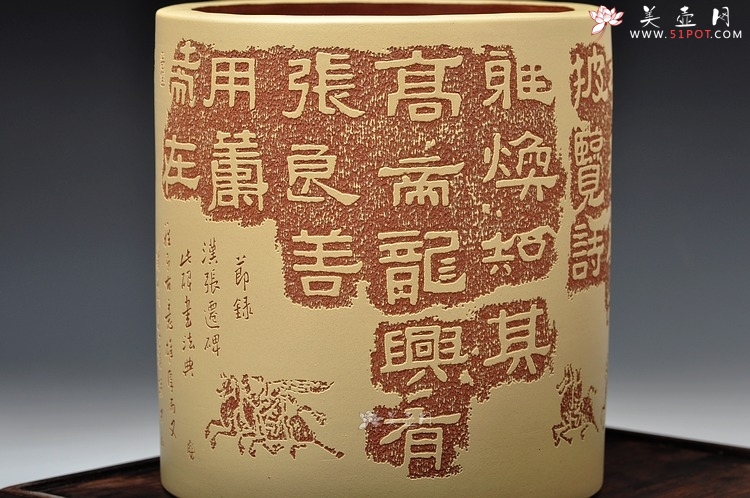 美壶网
WWW.51POT.COM
披覽詩
雅煥知其
高帝龍興有
張良善
用蕭
在
節録
漢張遷碑
此碑書法典